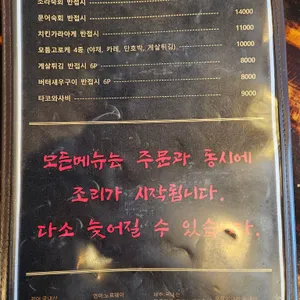 소라숙회 반접시
문어숙회 반접시 14000
치킨가라아게 반접시 11000
모듬고로케 4종 (야채, 카레, 단호박, 게살튀김) 10000
게살튀김 반접시 6P 8000
버터새우구이 반접시 6P 8000
타코와사비 9000
모든메뉴는 주문과 동시에
조리가 시작됩니다.
다소 늦어질 수 있습니다.